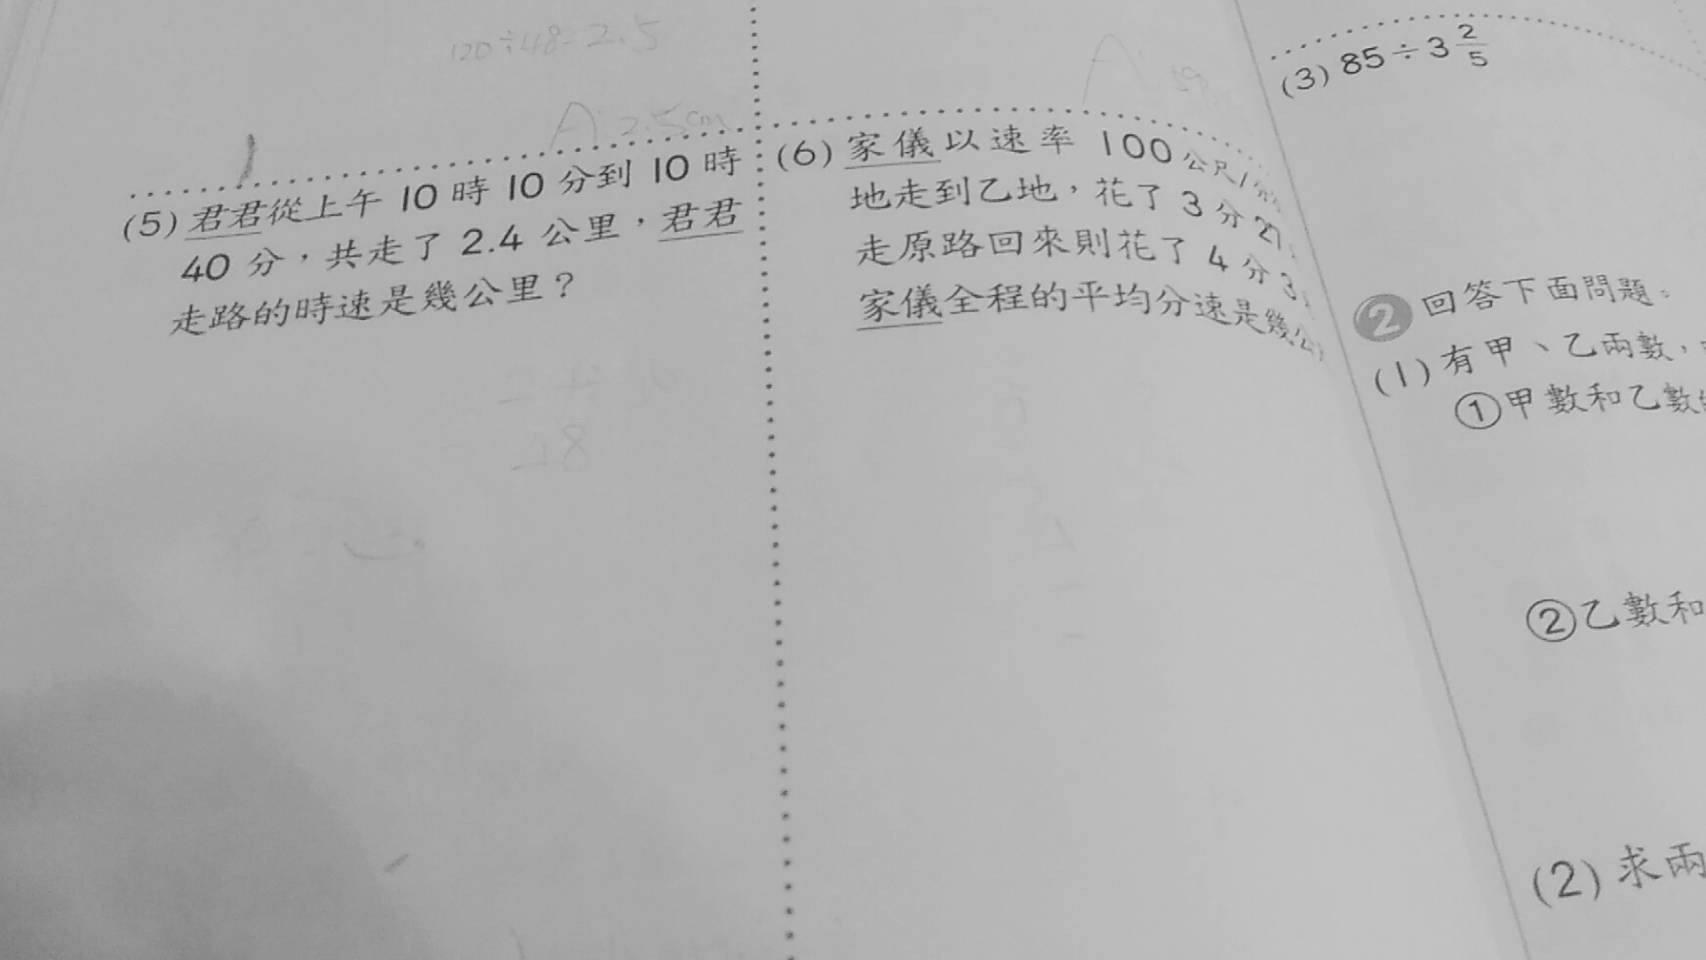 120÷48=2.5
A:2.5cm
(5)君君從上午 10 時 10 分到 10 時
40 分，共走了 2.4 公里，君君
走路的時速是幾公里？
(6)家儀以速率 100 公尺/分
地走到乙地，花了 3 分 27
走原路回來則花了 4 分 3
家儀全程的平均分速是幾公
(3) 85÷3 2/5
2 回答下面問題。
(1)有甲、乙兩數，
①甲數和乙數
②乙數和
(2)求兩